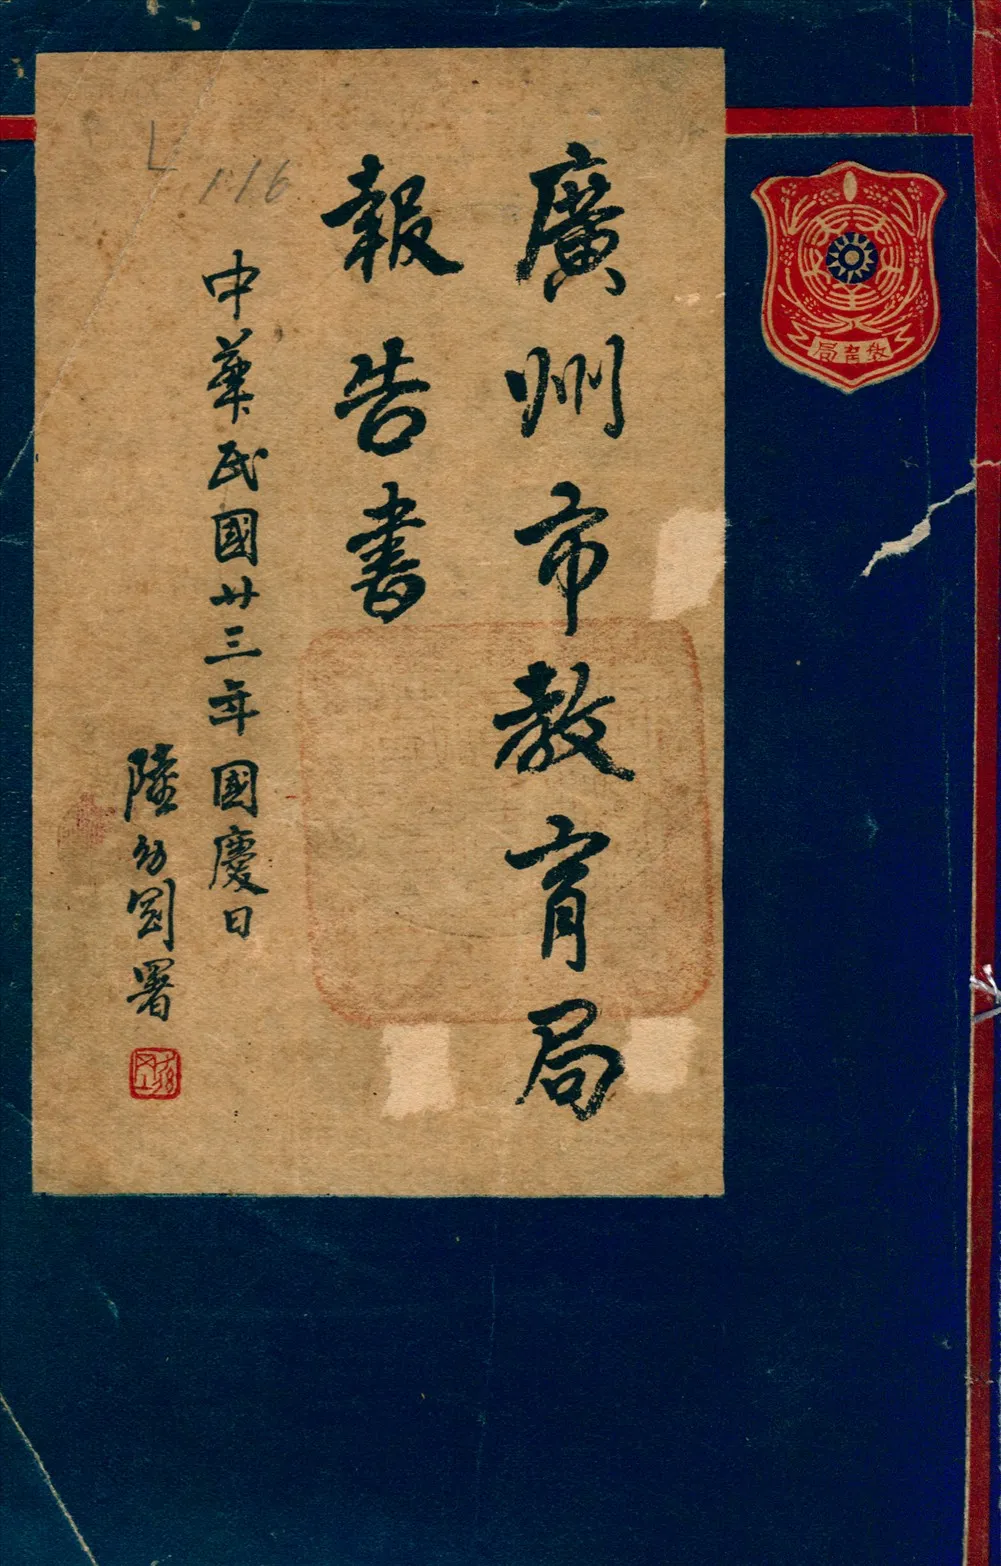 廣州市教育局
報告書
中華民國廿三年國慶日
陸幼剛署
教育局
116